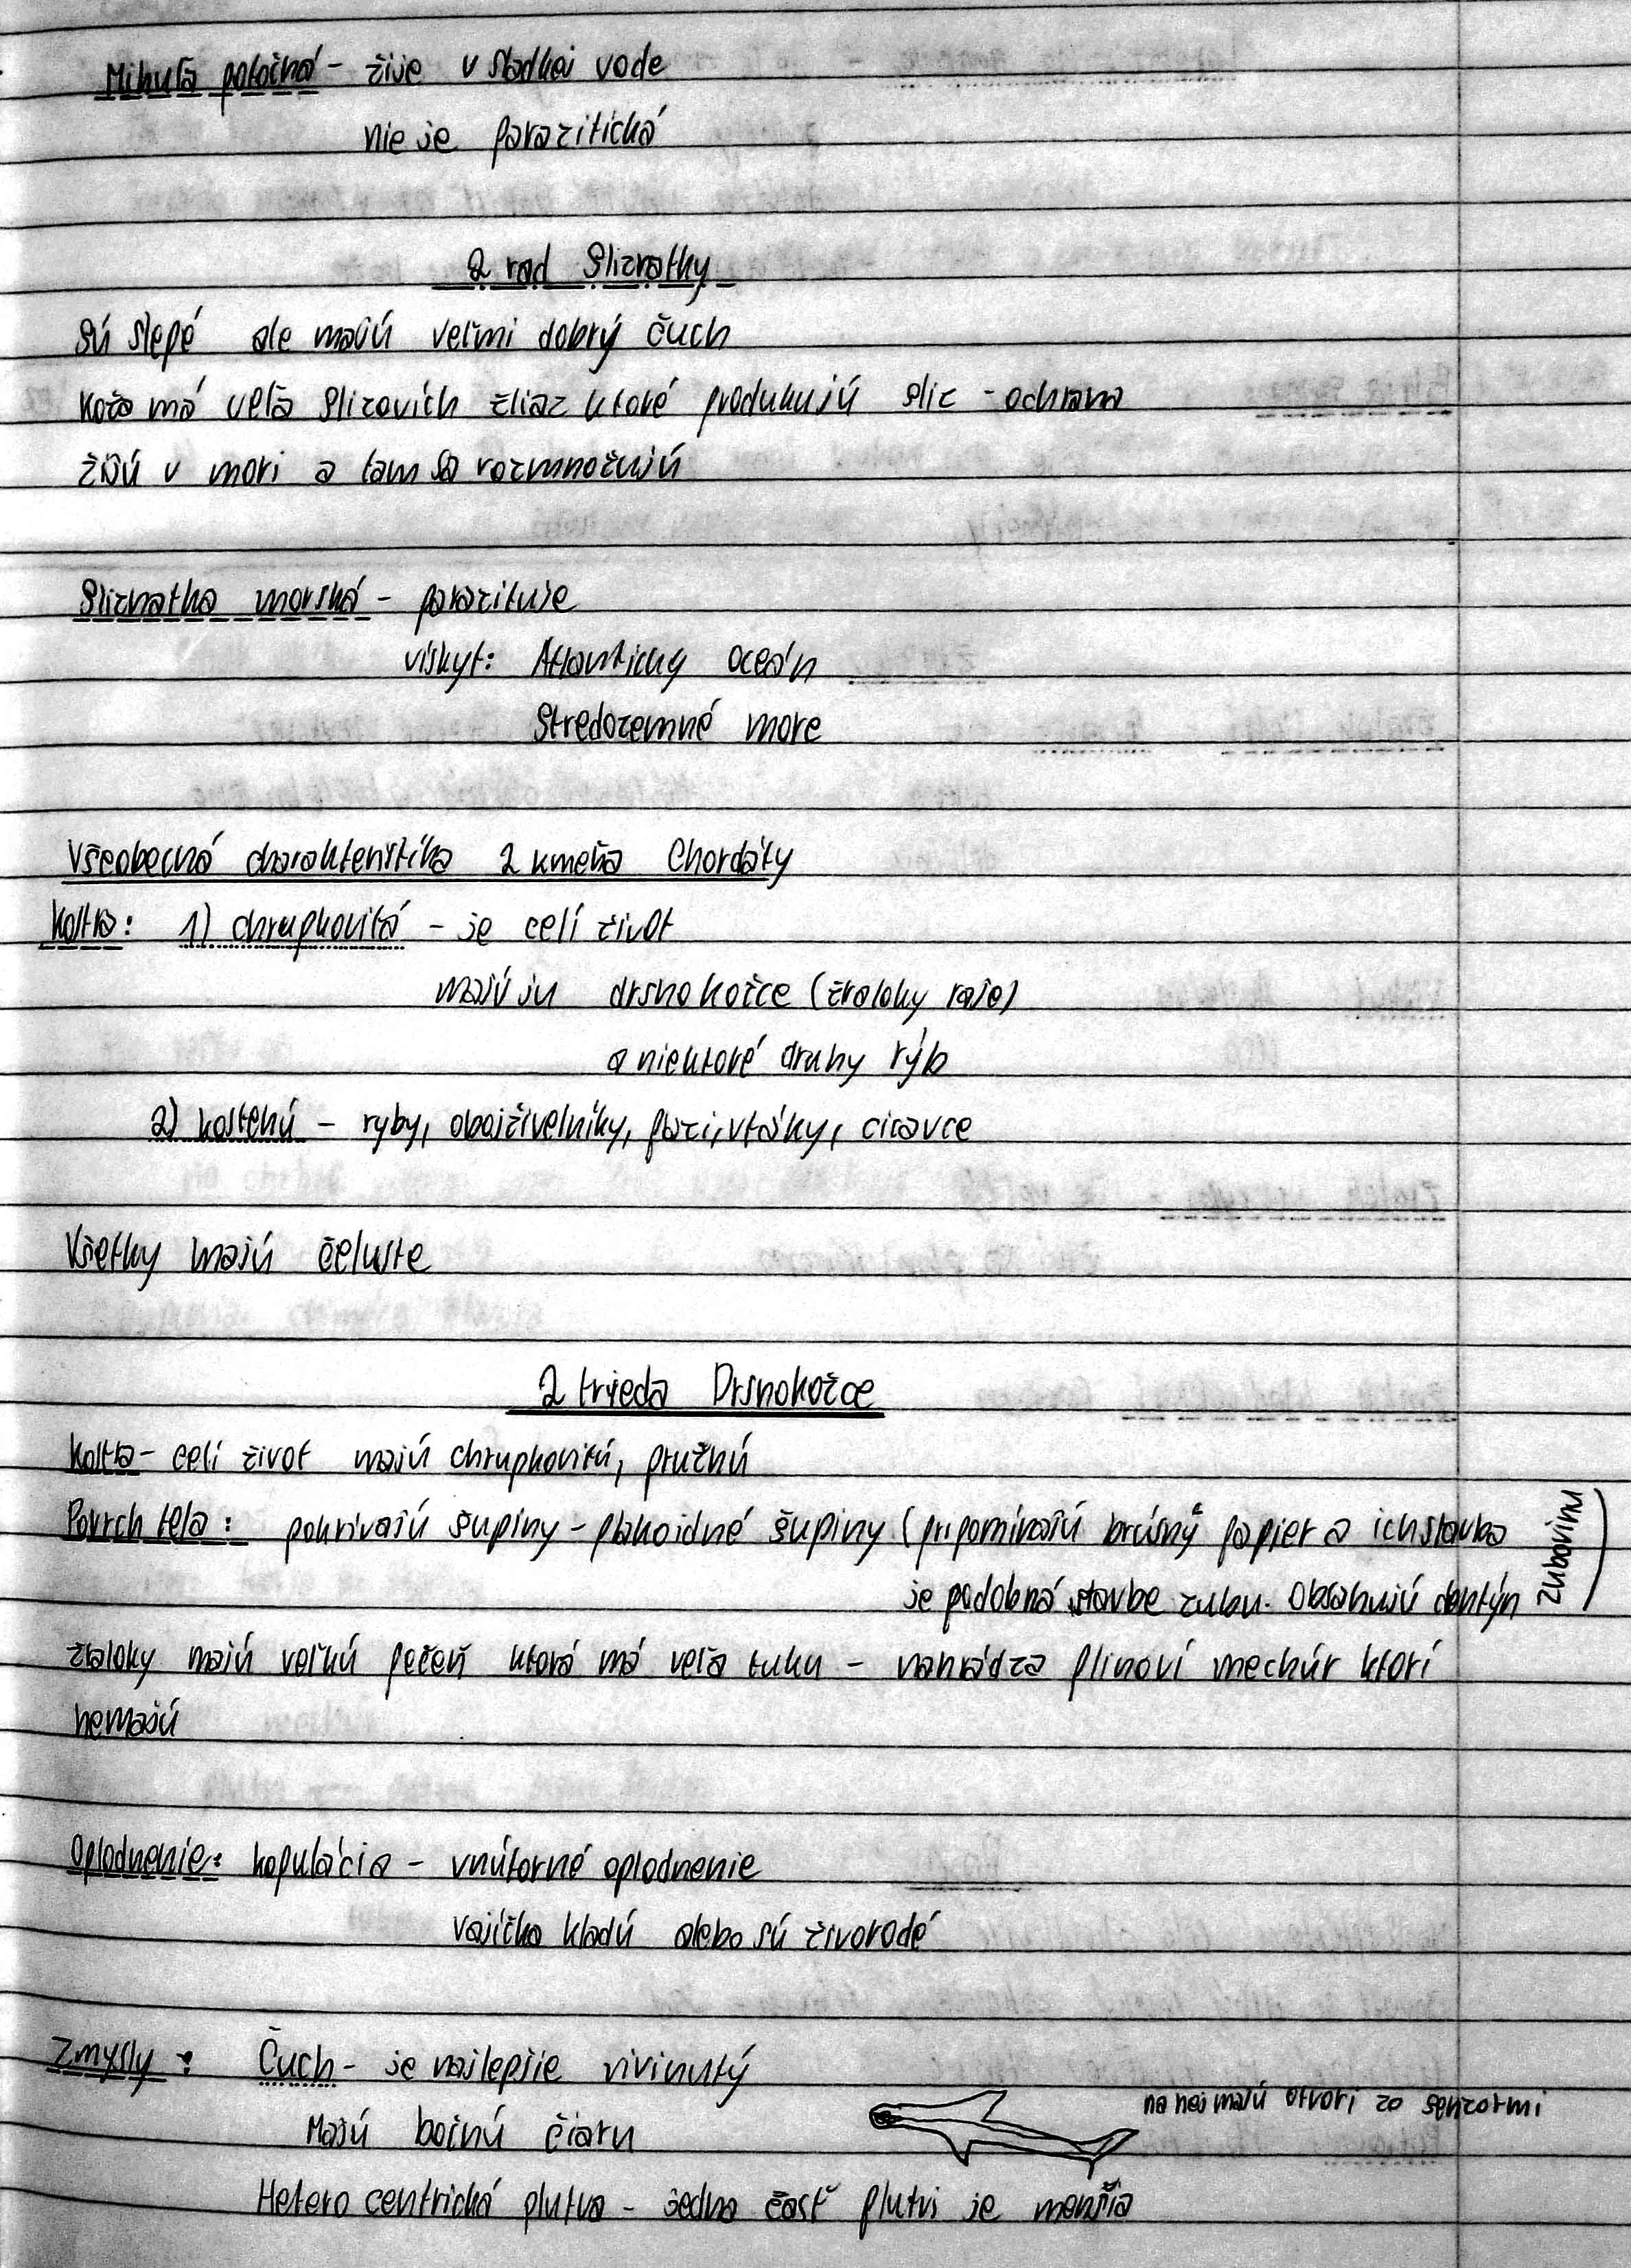 Mihuľa potočná - žije v sladkej vode
nie je parazitická
2 rad Sliznatky
sú slepé ale majú veľmi dobrý čuch
koža má veľa slizovích žliaz ktoré produkujú sliz - ochrana
žijú v mori a tam sa rozmnožujú
Sliznatka morská - parazituje
vískyt: Atlanticky oceán
Stredozemné more
Všeobecná charakteristika 2 kmeňa Chordáty
Kostra: 1) chrupkovitá - je celí život
majú ju drsnokožce (žraloky raje)
a niektoré druhy rýb
2) kostenú - ryby, obojživelníky, plazi, vtáky, cicavce
Všetky majú čeluste
2 trieda Drsnokožce
Kostra - celí život majú chrupkovitú, pružnú
Povrch tela: pokrívajú šupiny - plakoidné šupiny (pripomínajú brúsný papier a ich stavba
je podobná stavbe zubu. Obsahujú dentýn
zubovinu)
žraloky majú veľkú pečeň ktorá má veľa tuku - nahrádza plinoví mechúr ktorí
nemajú
Oplodnenie: kopulácia - vnútorné oplodnenie
vajíčka kladú alebo sú živorodé
Zmysly: Čuch - je najlepšie vivinutý
Majú bočnú čiaru
na nej majú otvori zo senzormi
Hetero centrická plutva - jedna časť plutvi je menšia